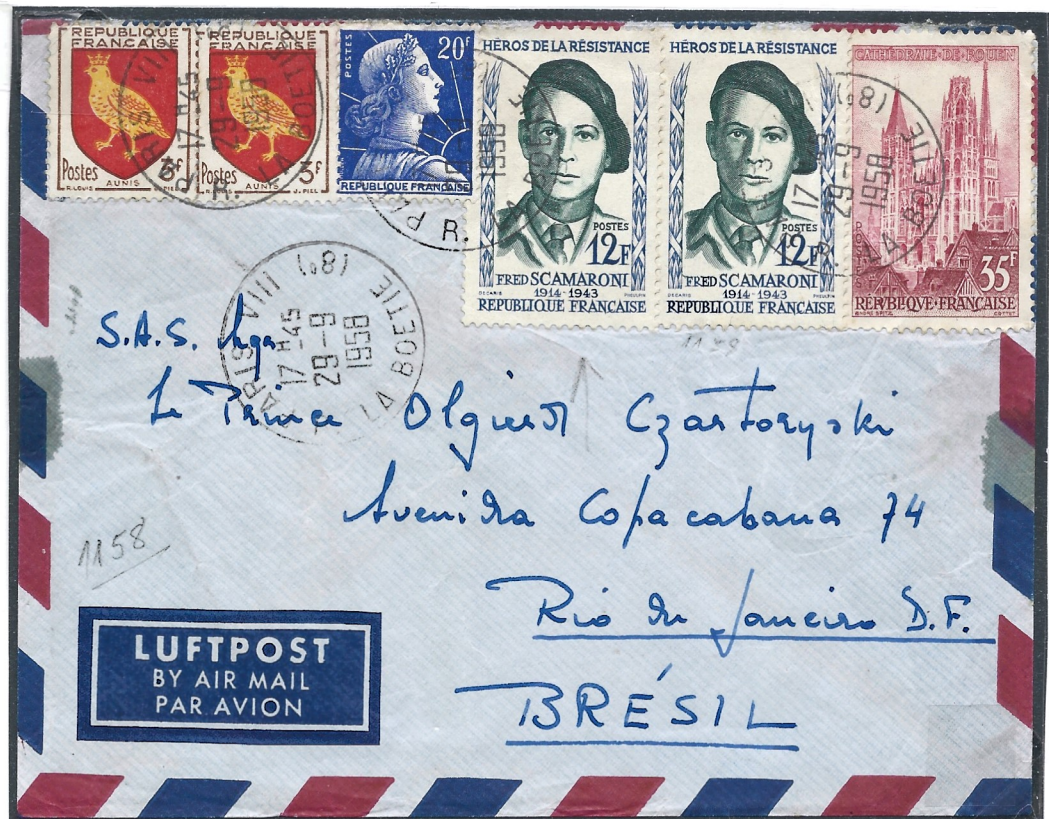 REPUBLIQUE FRANÇAISE
Postes 3F
R. LOUIS AUNIS J. PIEL
REPUBLIQUE FRANÇAISE
Postes 3F
R. LOUIS AUNIS J. PIEL
POSTES 20F
REPUBLIQUE FRANÇAISE
HÉROS DE LA RÉSISTANCE
POSTES
12F
FRED SCAMARONI
1914-1943
DECARIS PHEULPIN
REPUBLIQUE FRANÇAISE
HÉROS DE LA RÉSISTANCE
POSTES
12F
FRED SCAMARONI
1914-1943
DECARIS PHEULPIN
REPUBLIQUE FRANÇAISE
CATHÉDRALE DE ROUEN
35F
REPUBLIQUE FRANÇAISE
ANDRE SPITZ COTTET
PARIS VIII (8e)
17H45
29-9
1958
R. LA BOETIE
1159
S.A.S. Mgr
Le Prince Olgierd Czartoryski
Avenida Copacabana 74
Rio de Janeiro D.F.
BRÉSIL
1158
LUFTPOST
BY AIR MAIL
PAR AVION